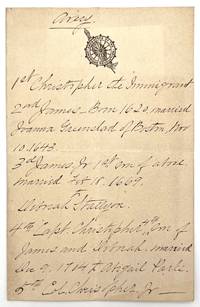 Avery.
1st Christopher the Immigrant
2nd James - Born 1620, married
Joanna Greenslad of Boston, Nov
10. 1643.
3d James, Jr 1st son of above
married Feb 18. 1669.
Deborah Stallyon.
4th Capt. Christopher, son of
James and Deborah, married
Dec 2. 1714 Abigail Park.
5th Col. Christopher, Jr